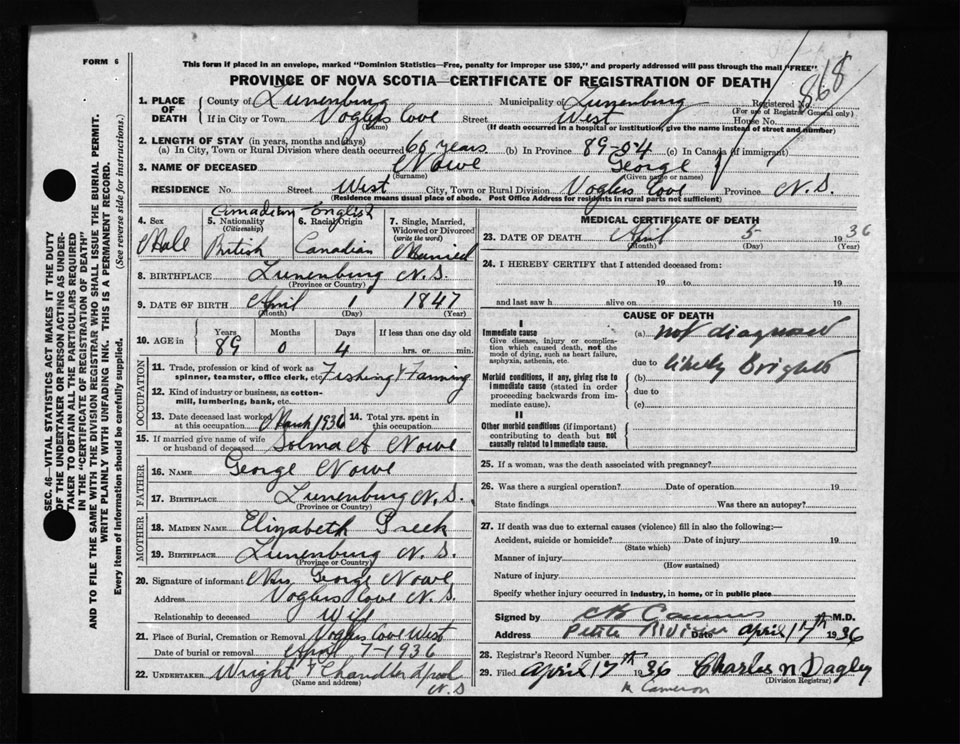 FORM 6
This form if placed in an envelope, marked "Dominion Statistics—Free, penalty for improper use $300," and properly addressed will pass through the mail "FREE"
PROVINCE OF NOVA SCOTIA—CERTIFICATE OF REGISTRATION OF DEATH
868
1. PLACE OF DEATH { County of Lunenburg Municipality of Lunenburg Registered No.
(For use of Registrar General only)
If in City or Town Voglers Cove Street West House No.
(Name) (If death occurred in a hospital or institution, give the name instead of street and number)
2. LENGTH OF STAY (in years, months and days)
(a) In City, Town or Rural Division where death occurred years (b) In Province 89-0-4 (c) In Canada (if immigrant)
3. NAME OF DECEASED Nowe George
(Surname) (Given name or names)
RESIDENCE No. Street West City, Town or Rural Division Voglers Cove Province N.S.
(Residence means usual place of abode. Post Office Address for residents in rural parts not sufficient)
4. Sex Male
5. Nationality (Citizenship) Canadian British
6. Racial Origin English Canadian
7. Single, Married, Widowed or Divorced (write the word) Married
8. BIRTHPLACE Lunenburg N.S.
(Province or Country)
9. DATE OF BIRTH April 1 1847
(Month) (Day) (Year)
10. AGE in { Years 89 Months 0 Days 4 If less than one day old hrs. or min.
OCCUPATION
11. Trade, profession or kind of work as spinner, teamster, office clerk, etc. Fishing & Farming
12. Kind of industry or business, as cotton-mill, lumbering, bank, etc.
13. Date deceased last worked at this occupation March 1936 14. Total yrs. spent in this occupation
15. If married give name of wife or husband of deceased Nowe
FATHER
16. NAME George Nowe
17. BIRTHPLACE Lunenburg N.S.
(Province or Country)
MOTHER
18. MAIDEN NAME Elizabeth
19. BIRTHPLACE Lunenburg N.S.
(Province or Country)
20. Signature of informant Mrs. George Nowe
Address Voglers Cove N.S.
Relationship to deceased Wife
21. Place of Burial, Cremation or Removal Voglers Cove West
Date of burial or removal April 7-1936
22. UNDERTAKER Wright & Chandler N.S
(Name and address)
MEDICAL CERTIFICATE OF DEATH
23. DATE OF DEATH April 5 1936
(Month) (Day) (Year)
24. I HEREBY CERTIFY that I attended deceased from:
19 to 19
and last saw h alive on 19
CAUSE OF DEATH
I
Immediate cause
Give disease, injury or complication which caused death, not the mode of dying, such as heart failure, asphyxia, asthenia, etc.
(a) not diagnosed
due to likely Brights
Morbid conditions, if any, giving rise to immediate cause (stated in order proceeding backwards from immediate cause).
(b)
due to
(c)
II
Other morbid conditions (if important) contributing to death but not causally related to immediate cause.
25. If a woman, was the death associated with pregnancy?
26. Was there a surgical operation? Date of operation 19
State findings Was there an autopsy?
27. If death was due to external causes (violence) fill in also the following:—
Accident, suicide or homicide? Date of injury 19
(State which)
Manner of injury
(How sustained)
Nature of injury
Specify whether injury occurred in industry, in home, or in public place
Signed by M.D.
Address Petite Riviere Date April 17th 1936
28. Registrar's Record Number
29. Filed April 17th 1936 Charles N Dagley
(Division Registrar)
M Cameron
SEC. 46—VITAL STATISTICS ACT MAKES IT THE DUTY
OF THE UNDERTAKER OR PERSON ACTING AS UNDER-
TAKER TO OBTAIN ALL THE PARTICULARS REQUIRED
IN THE "CERTIFICATE OF REGISTRATION OF DEATH"
AND TO FILE THE SAME WITH THE DIVISION REGISTRAR WHO SHALL ISSUE THE BURIAL PERMIT.
WRITE PLAINLY WITH UNFADING INK. THIS IS A PERMANENT RECORD.
Every item of information should be carefully supplied. (See reverse side for instructions.)